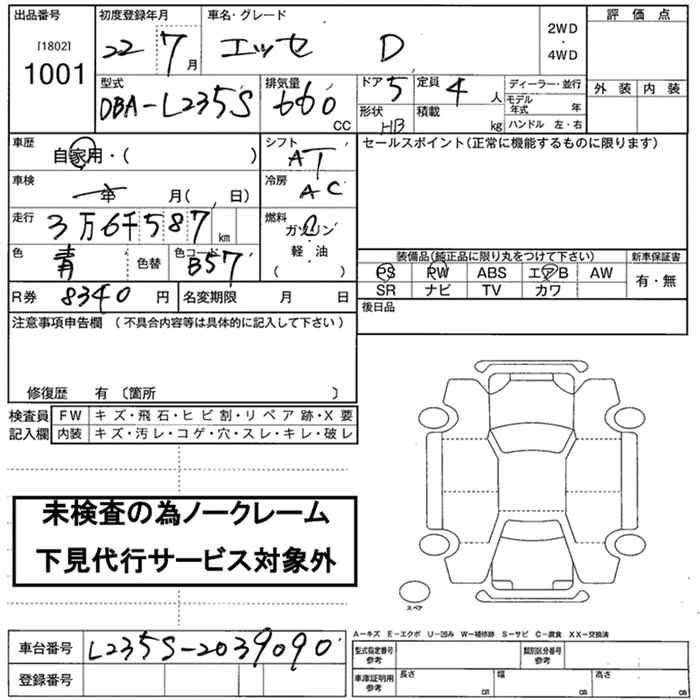 出品番号 初度登録年月 車名・グレード 2WD・4WD 評価点
[1802] 1001 22 7月 エッセ D
型式 排気量 ドア 5 定員 4人 ディーラー・並行 外装 内装
DBA-L235S 660 CC 形状 HB 積載 kg モデル年式 年
ハンドル 左・右
車歴 自家用・( ) シフト AT セールスポイント(正常に機能するものに限ります)
車検 年 月( 日) 冷房 AC
走行 3万6千587km 燃料 ガソリン
色 青 色替 色コード B57 軽・油 ( )
装備品(純正品に限り丸をつけて下さい) 新車保証書
PS PW ABS エアB AW 有・無
SR ナビ TV カワ
R券 8340円 名変期限 月 日 後日品
注意事項申告欄 (不具合内容等は具体的に記入して下さい)
修復歴 有 〔箇所 〕
検査員 FW キズ・飛石・ヒビ割・リペア跡・X要
記入欄 内装 キズ・汚レ・コゲ・穴・スレ・キレ・破レ
未検査の為ノークレーム
下見代行サービス対象外
スペア
A-キズ E-エクボ U-凹み W-補修跡 S-サビ C-腐食 XX-交換済
車台番号 L235S-2039090 型式指定番号 参考 類別区分番号 参考
登録番号 車庫証明用 参考 長さ cm 幅 cm 高さ cm